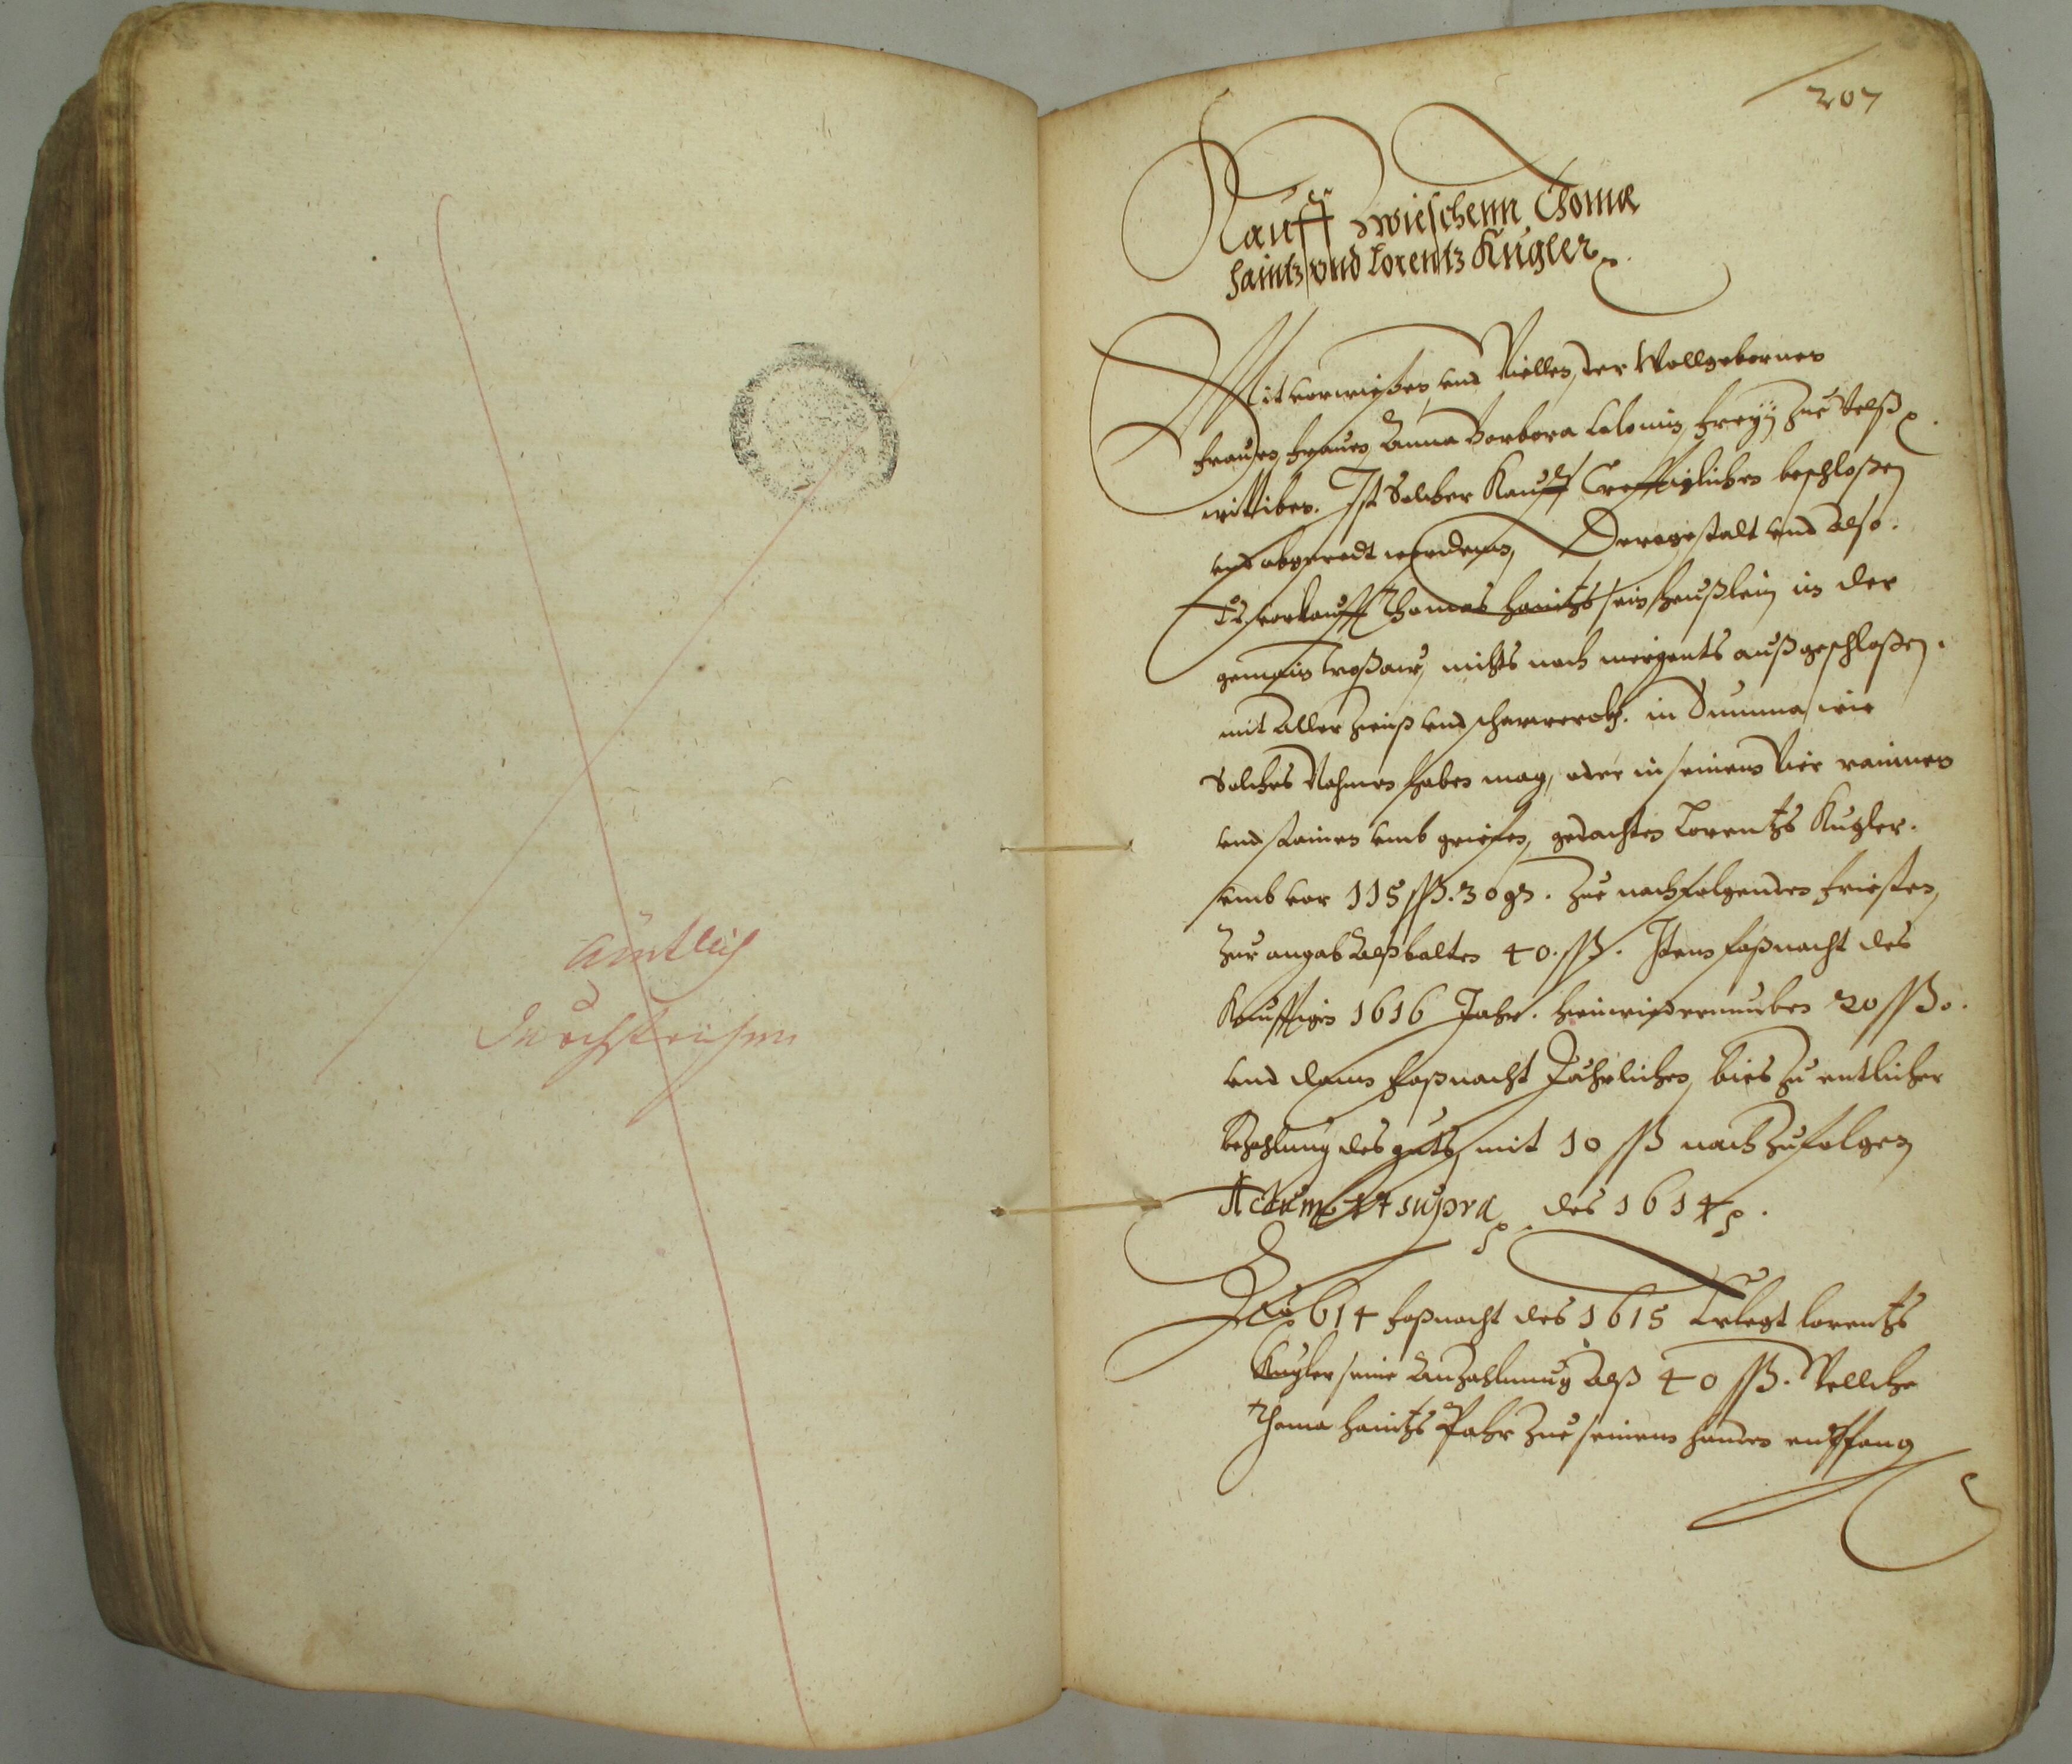 Ämtlich
durchstrichen
207
Kauff Zwieschenn Thoma
Haintz vnd Lorentz Kugler
Mit vorwießen vnd Willen, der Wollgebornen
Frauen Frauen Anna Barbora Colonin Freyin Zue Velß
wittiben. Ist Solcher Kauff beschloßen
vnd abgeredt wordenn, Deregestalt vnd Also.
Es vorkaufft Thomas Hanitzs sein heußlein in der
gemein nichts noch nirgents außgeschloßen.
mit Aller Zinß vnd in Summa wie
Solches Nahmen haben mag, oder in seinenn Vier rainnen
vnd stainen vmbgriefen, gedachten Lorentzs Kugler.
vmb vor 115 ßß. 30 gr. Zue nachfolgenden friesten,
Zur angab Alßbalten 40. ßß. Item faßnacht des
Kunfftigen 1616 Jahr. hinwiederumben 20 ßß.
vnd dann faßnacht Jährlichen, bies Zu entlicher
bezahlung des gutts, mit 10 ßß nachzufolgen
Actum ut supra des 1614.
614 faßnacht des 1615 Erlegt lorentzs
Kugler seine Anzahlunng Alß 40 ßß. Wellche
Thoma Hanitzs Zue seinenn handen entpfang